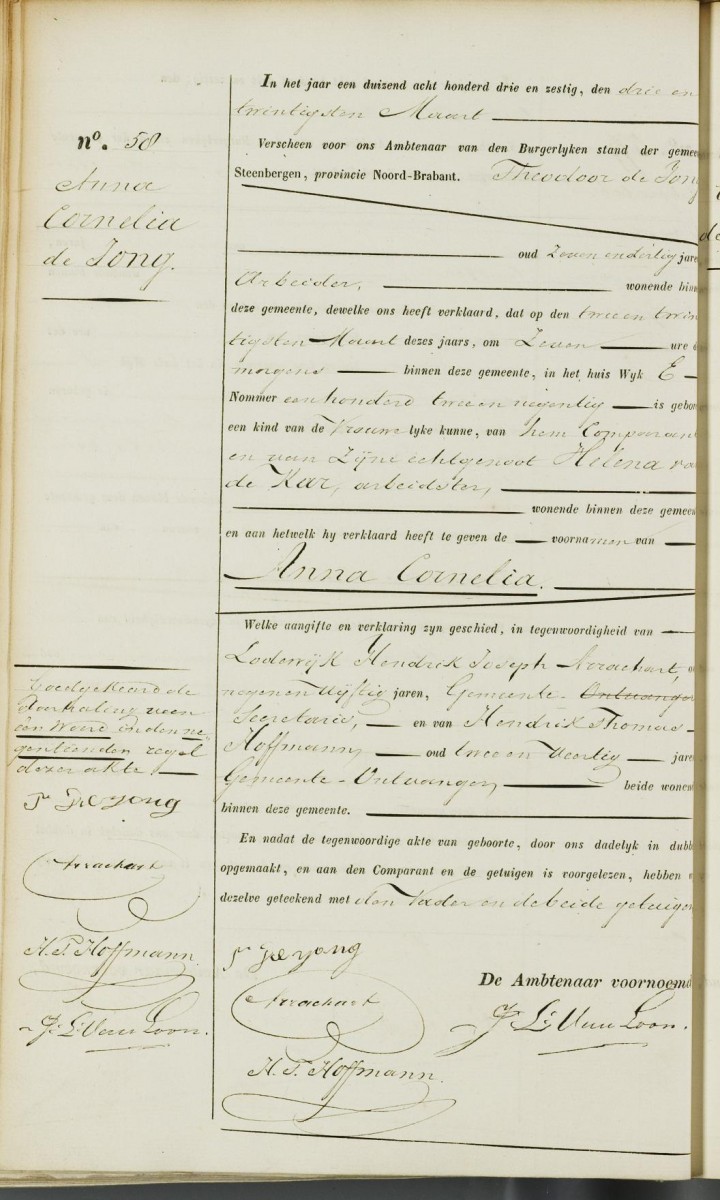 nº. 58
Anna
Cornelia
de Jong.
In het jaar een duizend acht honderd drie en zestig, den drie en
twintigsten Maart
Verscheen voor ons Ambtenaar van den Burgerlyken stand der gemee
Steenbergen, provincie Noord-Brabant. Theodoor de Jong
oud Zeven en dertig jare
Arbeider, wonende binn
deze gemeente, dewelke ons heeft verklaard, dat op den twee en twin
tigsten Maart dezes jaars, om Zeven ure
morgens binnen deze gemeente, in het huis Wyk E
Nommer een honderd twee en negentig is gebo
een kind van de Vrouwelyke kunne, van hem Comparan
en van Zijne echtgenoot Helena va
de Kar, arbeidster,
wonende binnen deze gemeen
en aan hetwelk hy verklaard heeft te geven de voornamen van
Anna Cornelia.
Welke aangifte en verklaring zyn geschied, in tegenwoordigheid van
Lodewijk Hendrik Joseph Arrachart,
negen en Vijftig jaren, Gemeente- Ontvanger
Secretaris, en van Hendrik Thomas
Hoffmann, oud twee en Veertig jare
Gemeente-Ontvanger, beide wonen
binnen deze gemeente.
En nadat de tegenwoordige akte van geboorte, door ons dadelyk in dubb
opgemaakt, en aan den Comparant en de getuigen is voorgelezen, hebben
dezelve geteekend met den Vader en de beide getuigen
De Ambtenaar voornoemd
Arrachart
H. T. Hoffmann.
J. L. Van Loon.
Goedgekeurd de
doorhaling van
een Woord in den ne
gentienden regel
dezer akte.
Arrachart
H. T. Hoffmann.
J. L. Van Loon.